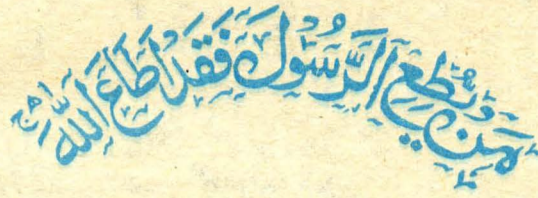 مَنْ يُّطِعِ الرَّسُوْلَ فَقَدْ اَطَاعَ اللّٰهَ ج